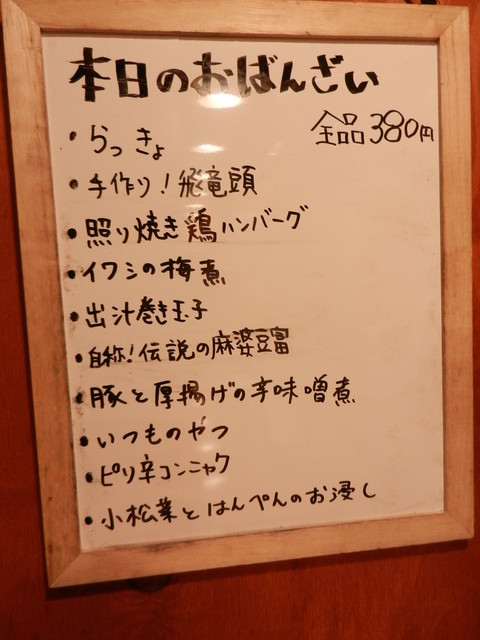 本日のおばんざい
全品380円
・らっきょ
・手作り!飛竜頭
・照り焼き鶏ハンバーグ
・イワシの梅煮
・出汁巻き玉子
・自称!伝説の麻婆豆富
・豚と厚揚げの辛味噌煮
・いつものやつ
・ピリ辛コンニャク
・小松菜とはんぺんのお浸し